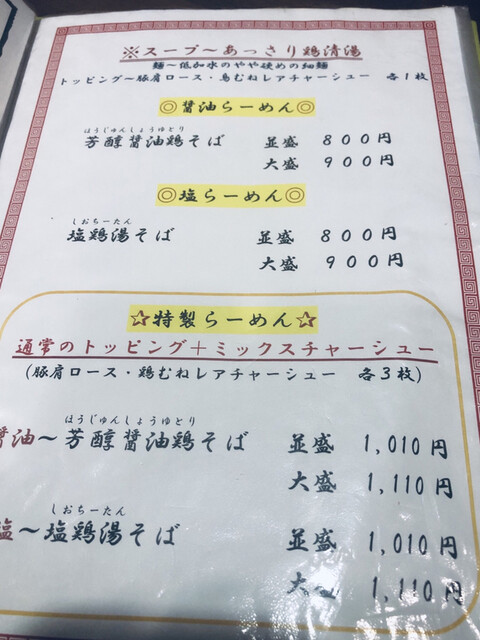 ※スープ～あっさり鶏清湯
麺～低加水のやや硬めの細麺
トッピング～豚肩ロース・鳥むねレアチャーシュー 各1枚
◎醤油らーめん◎
ほうじゅんしょうゆとり
芳醇醤油鶏そば 並盛 800円
大盛 900円
◎塩らーめん◎
しおちーたん
塩鶏湯そば 並盛 800円
大盛 900円
☆特製らーめん☆
通常のトッピング＋ミックスチャーシュー
(豚肩ロース・鶏むねレアチャーシュー 各3枚)
ほうじゅんしょうゆとり
醤油～芳醇醤油鶏そば 並盛 1,010円
大盛 1,110円
しおちーたん
塩～塩鶏湯そば 並盛 1,010円
大盛 1,110円